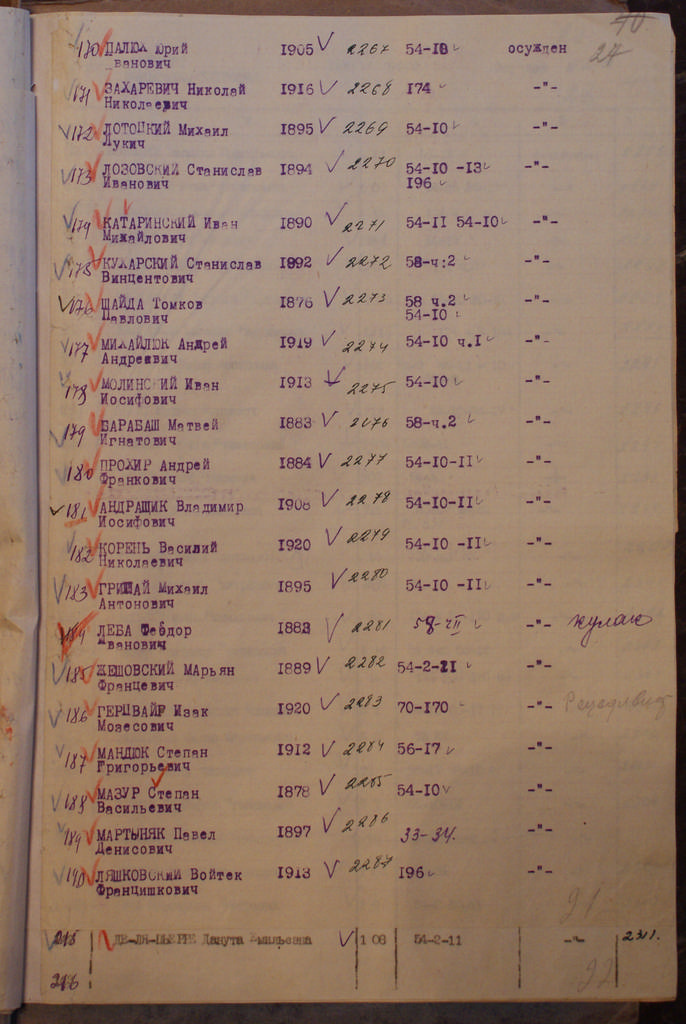 40
27
170 ПАЛЮХ Юрий 1905 2267 54-10 осужден
Иванович
171 ЗАХАРЕВИЧ Николай 1916 2268 174 -"-
Николаевич
172 ЛОТОЦКИЙ Михаил 1895 2269 54-10 -"-
Лукич
173 ЛОЗОВСКИЙ Станислав 1894 2270 54-10 -13 -"-
Иванович 196
174 КАТАРИНСКИЙ Иван 1890 2271 54-II 54-10 -"-
Михайлович
175 КУХАРСКИЙ Станислав 1892 2272 58-ч:2 -"-
Винцентович
176 ШАЙДА Томков 1876 2273 58 ч.2 -"-
Павлович 54-10
177 МИХАЙЛЮК Андрей 1919 2274 54-10 ч.I -"-
Андреевич
178 МОЛИНСКИЙ Иван 1913 2275 54-10 -"-
Иосифович
179 БАРАБАШ Матвей 1883 2276 58-ч.2 -"-
Игнатович
180 ПРОХИР Андрей 1884 2277 54-10-II -"-
Франкович
181 АНДРАЩИК Владимир 1908 2278 54-10-II -"-
Иосифович
182 КОРЕНЬ Василий 1920 2279 54-10 -II -"-
Николаевич
183 ГРИЦАЙ Михаил 1895 2280 54-10 -II -"-
Антонович
184 ЛЕБА Феодор 1883 2281 58-чII -"- кулак
Иванович
185 ЖЕШОВСКИЙ Марьян 1889 2282 54-2-21 -"-
Францевич
186 ГЕРЦВАЙГ Изак 1920 2283 70-170 -"-
Мозесович
187 МАНДЮК Степан 1912 2284 56-17 -"-
Григорьевич
188 МАЗУР Степан 1878 2285 54-10 -"-
Васильевич
189 МАРТЫНЯК Павел 1897 2286 33-34. -"-
Денисович
190 ЛЯШКОВСКИЙ Войтек 1913 2287 196 -"-
Францишкович
91
215 Данута 54-2-11 -"- 2311.
216 92